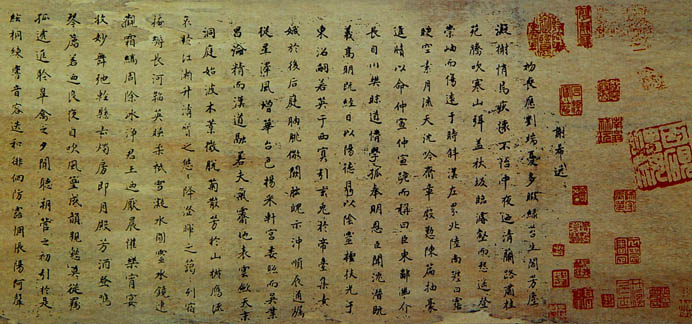 謝希逸
初喪應劉端憂多暇綠苔生閣芳塵
凝榭悄焉疚懷不怡中夜迺清蘭路肅桂
苑騰吹寒山弭蓋秋坂臨濬壑而怨遙登
崇岫而傷遠于時斜漢左界北陸南躔白露
曖空素月流天沈吟齊章殷懃陳篇抽豪
進牘以命仲宣仲宣跪而稱曰臣東鄙幽介
長自丘樊昧道懵學孤奉明恩臣聞沉潛既
義高明既經日以陽德月以陰靈擅扶光於
東沼嗣若英于西冥引玄兔於帝臺集素
娥於後庭朒朓警闕朏魄示沖順辰通燭
從星澤風增華台室揚采軒宮委照而吳業
昌淪精而漢道融若夫氣霽地表雲斂天末
洞庭始波木葉微脫菊散芳於山椒雁流
哀於江瀨升清質之悠悠降澄暉之藹藹列宿
掩縟長河韜映柔祇雪凝圓靈水鏡連
觀霜縞周除冰淨君王迺厭晨懽樂宵宴
收妙舞弛清縣去燭房即月殿芳酒登鳴
琴薦若迺涼夜自淒風篁成韻親懿莫從羈
孤遞進聆皋禽之夕聞聽朔管之秋引於是
絃桐練響音容選和徘徊房露惆悵陽阿聲